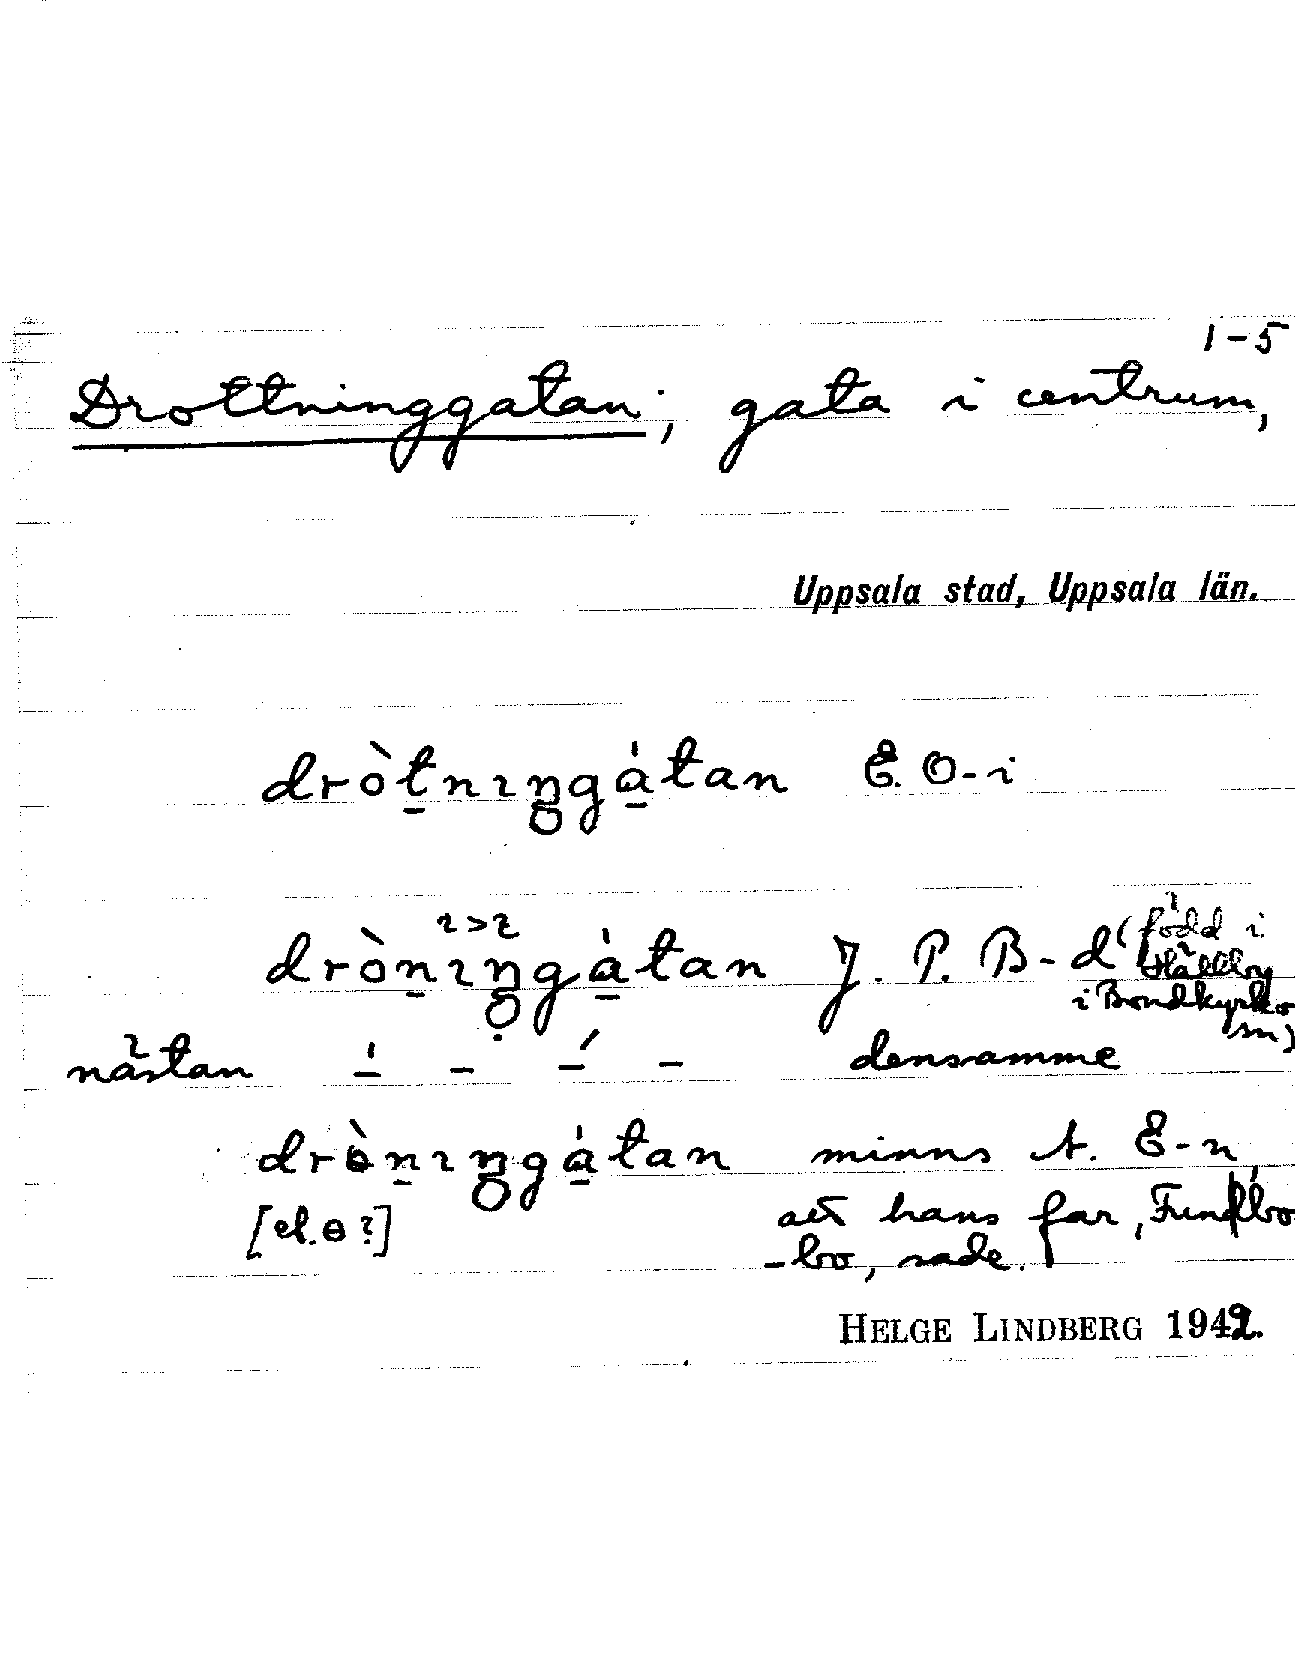 1-5
Drottninggatan; gata i centrum,
Uppsala stad, Uppsala län.
dròt̠nıŋgá̠tan E. O-i
ı>ɪ
dròn̠ıŋgá̠tan J. P. B-d (född i
Hällby
i Bondkyrko
sn)
nästan –́ – –́ – densamme
drɵ̀n̠ıŋgá̠tan minns A. E-n
[el. ɵ?] att hans far, Funbo
-bo, sade.
HELGE LINDBERG 1942.